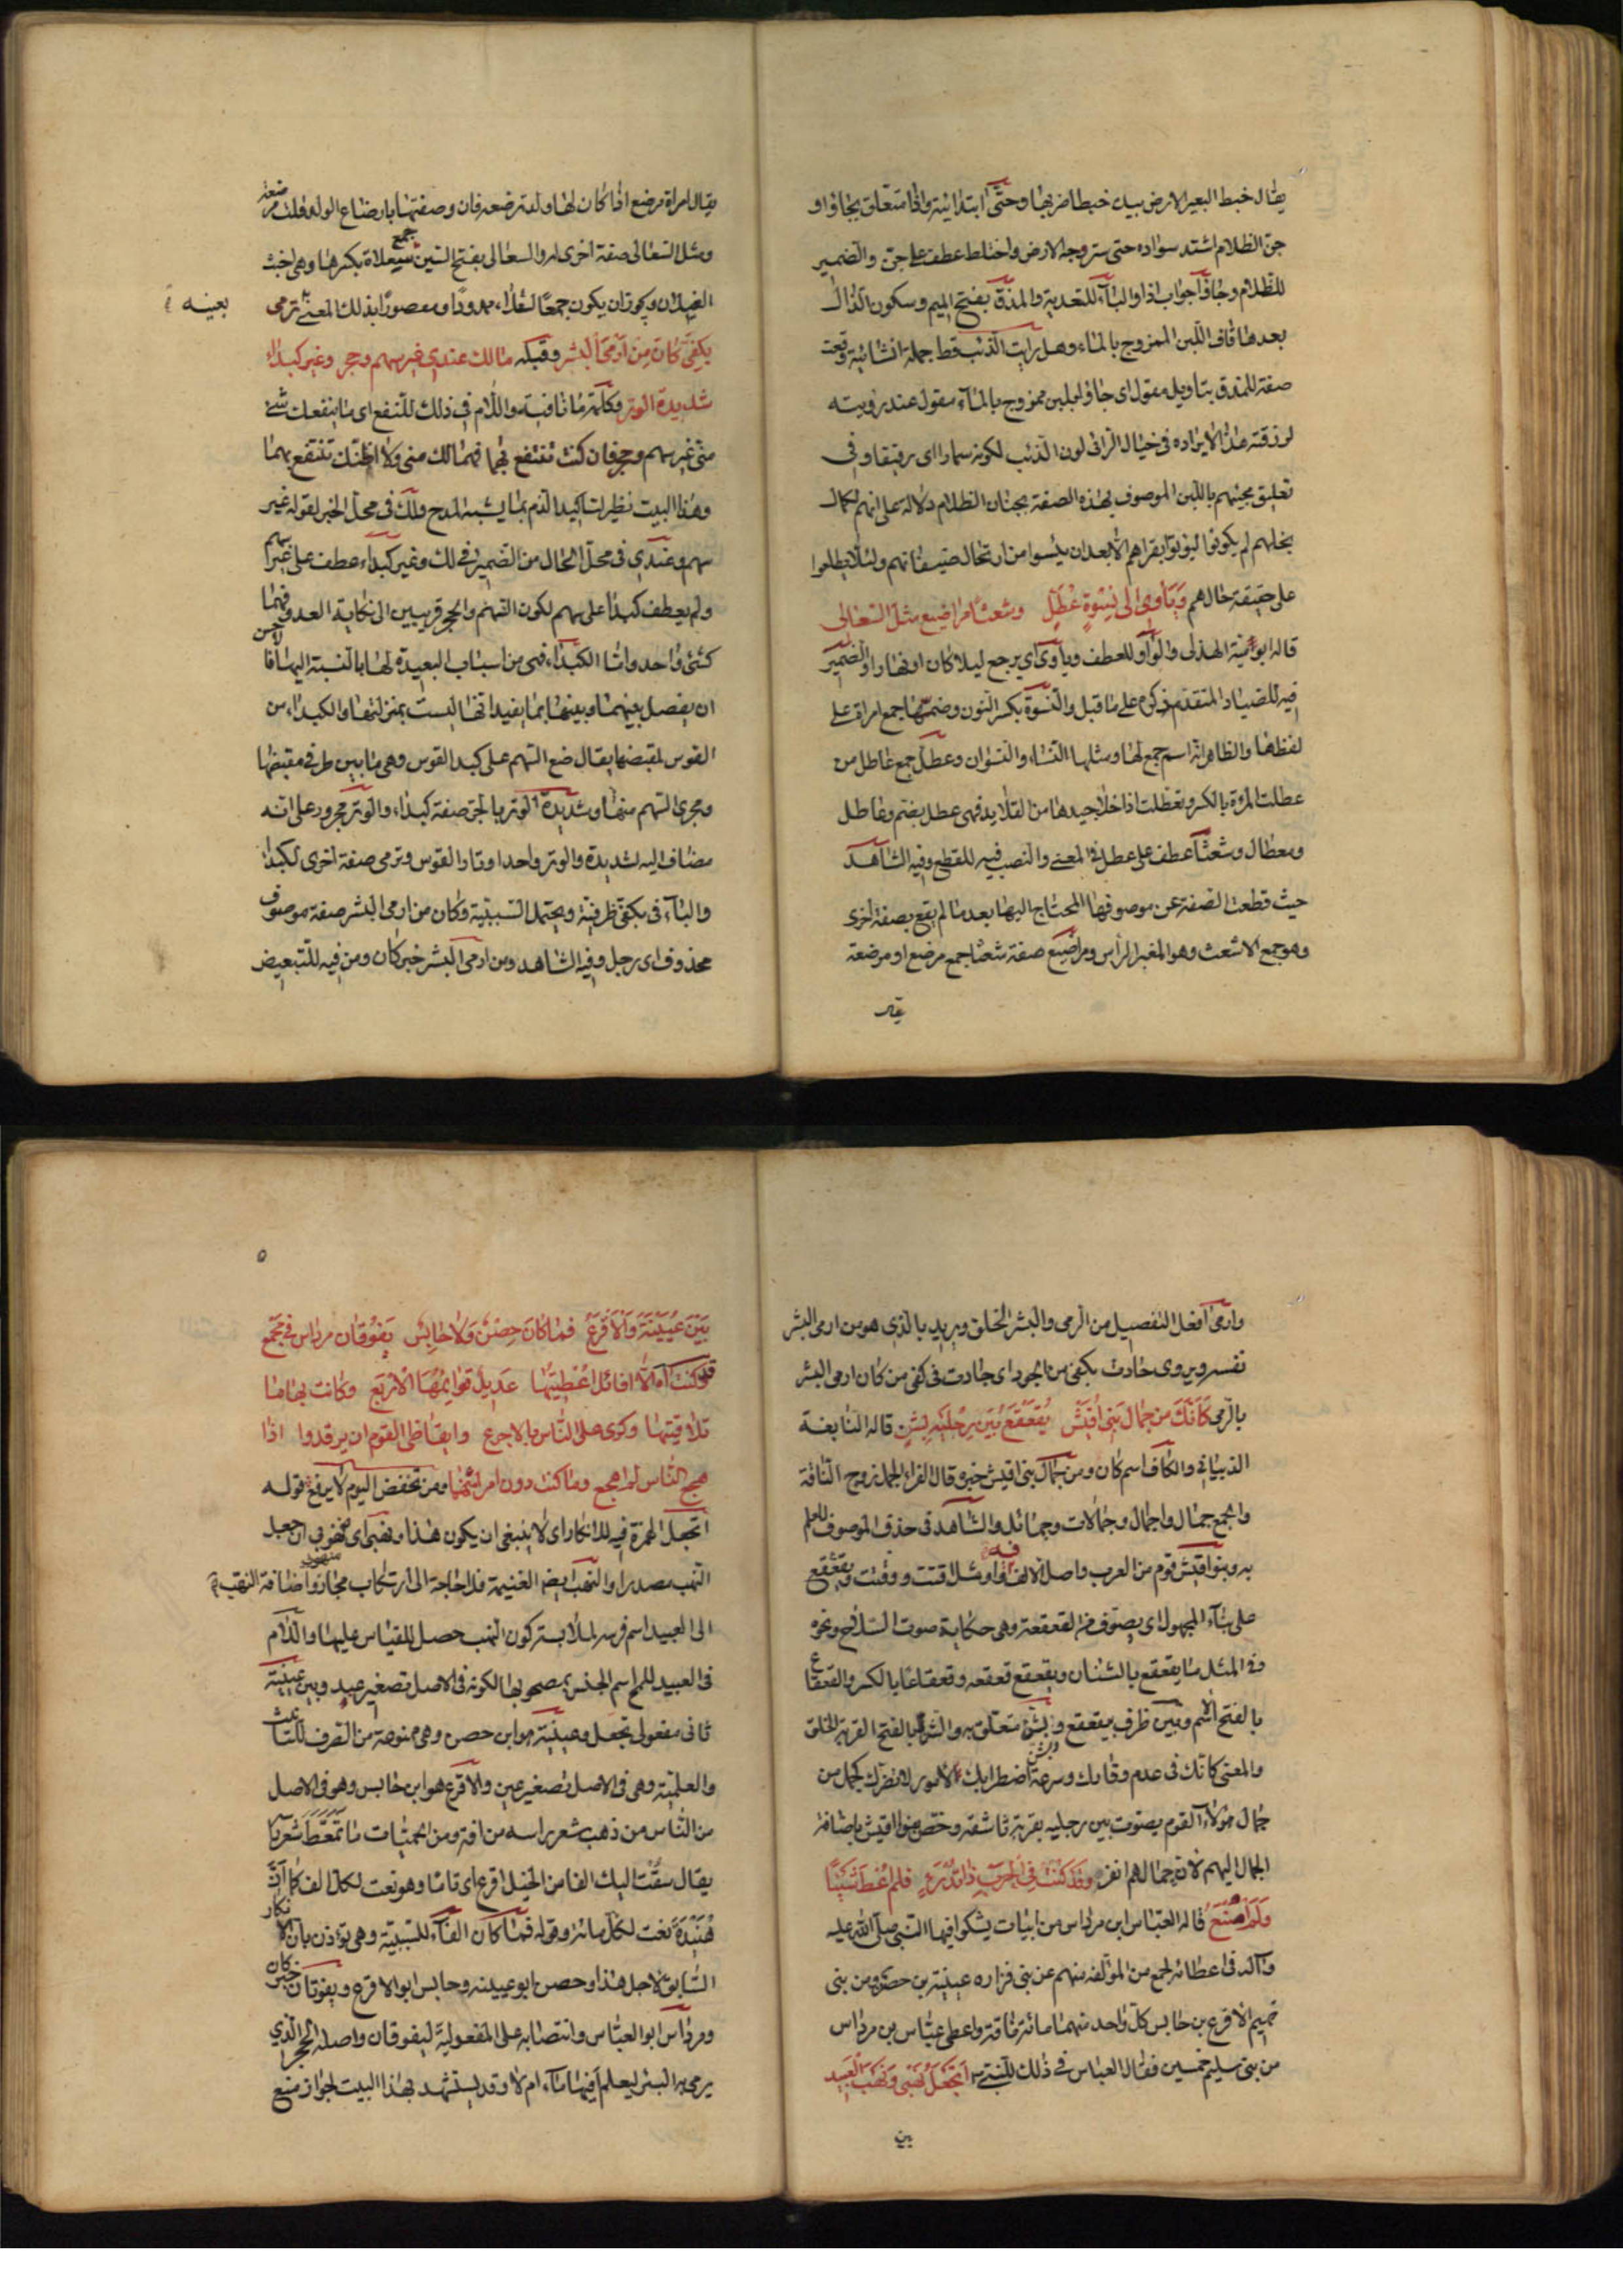 يقال خبط البعير الارض بيده خبطا ضربها وحتى ابتدائية واذا متعلق بجاؤا و
جن الظلام اشتد سواده حتى ستر وجه الارض واختلط عطف على جن والضمير
للظلام وجاؤا جواب اذا والباء للتعدية والمذق بفتح الميم وسكون الذال
بعدها قاف اللبن الممزوج بالماء وهل رايت الذئب قط جملة انشائية وقعت
صفة للمذق بتاويل مقول اى جاؤا بلبن ممزوج بالماء مقول عند رؤيته
لزرقته هذا لايراده فى خيال الرائى لون الذئب لكونه سمارا اى رقيقا وفى
تعليق مجيئهم باللبن الموصوف بهذه الصفة بجنان الظلام دلالة على انهم لكمال
بخلهم لم يكونوا ليؤتوا بقراهم الا بعد ان يئسوا من ارتحال ضيفانهم ولئلا يطلعوا
على حقيقة حالهم وياوى الى نسوة عطل وشعثا مراضيع مثل السعالى
قاله ابو امية الهذلى والواو للعطف وياوى اى يرجع ليلا كان او نهارا والضمير
فيه للصياد المتقدم ذكره على ما قبل والنسوة بكسر النون وضمها جمع امراة على
لفظها والظاهر انه اسم جمع لها ومثلها النساء والنسوان وعطل جمع عاطل من
عطلت المرءة بالكسر وتعطلت اذا خلا جيدها من القلايد فهى عطل بضم وعاطل
ومعطال وشعثا عطف على عطل فى المعنى والنصب فيه للقطع وفيه الشاهد
حيث قطعت الصفة عن موصوفها المحتاج اليها بعد ما لم يقع بصفة اخرى
وهو جمع الاشعث وهو المغبر الرأس ومراضيع صفة شعثا جمع مرضع او مرضعة
يقال
يقال امراة مرضع اذا كان لها ولد ترضعه فان وصفتها بارضاع الولد قلت مرضعة
ومثل السعالى صفة اخرى لها والسعالى بفتح السين جمع سعلاة بكسرها وهى اخبث
الغيلان ويجوز ان يكون جمعا لسعلاء ممدودا ومقصورا بذلك المعنى بعينه ترمى
بكفى كان من ارمى البشر وقبله مالك عندى غير سهم وحجر وغير كبداء
شديدة الوتر وكلمة ما نافية واللام فى ذلك للنفع اى ما ينفعك شئ
منى غير سهم وحجر فان كنت تنتفع بهما فهما لك منى ولا اظنك تنتفع بهما
وهذا البيت نظير لتاكيد الذم بما يشبه المدح ولك فى محل الخبر لقوله غير
سهم وعندى فى محل الحال من الضمير فى لك وغير كبداء عطف على غير سهم
ولم يعطف كبداء على سهم لكون السهم والحجر قريبين الى نكاية العدو فهما
كشئ واحد واما الكبداء فهى من اسباب البعيدة لها بالنسبة اليهما فالاحسن
ان يفصل بينهما وبينها بما يفيد انها ليست بمنزلتها والكبداء من
القوس لمقبضها يقال ضع السهم على كبد القوس وهى ما بين طرفى مقبضها
ومجرى السهم منها وشديدة الوتر بالجر صفة كبداء والوتر مجرور على انه
مضاف اليه لشديدة والوتر واحد اوتار القوس وترمى صفة اخرى لكبداء
والباء فى بكفى ظرفية ويحتمل السببية وكان من ارمى البشر صفة موصوف
محذوف اى رجل وفيه الشاهد ومن ارمى البشر خبر كان ومن فيه للتبعيض
وارمى افعل التفضيل من الرمى والبشر الخلق ويريد بالذى هو من ارمى البشر
نفسه ويروى جادت بكفى من الجود اى جادت فى كفى من كان ارمى البشر
بالرمى كانك من جمال بنى اقيش يقعقع بين رجليه بشن قاله النابغة
الذبيانى والكاف اسم كان ومن جمال بنى اقيش خبره قال الفراء الجمل زوج الناقة
والجمع جمال واجمال وجمالات وجمائل والشاهد فى حذف الموصوف للعلم
به وبنو اقيش قوم من العرب واصل الالف فيه واو مثل اقتت ووقتت ويقعقع
على بناء المجهول اى يصوت من القعقعة وهى حكاية صوت السلاح ونحوه
وفى المثل ما يقعقع بالشنان ويقعقع قعقعه وقعقاعا بالكسر والقعقاع
بالفتح الاسم وبين ظرف يقعقع وبشن متعلق به والشن بالفتح القربة الخلق
والمعنى كانك فى عدم وقارك وسرعة اضطرابك فى الامور لا تضرك كجمل من
جمال هؤلاء القوم يصوت بين رجليه بقربة ناشفة وخص بنوا اقيش باضافة
الجمال اليهم لان جمالهم انفر وقد كنت فى الحرب ذا تدرء فلم اعط شيئا
ولم امنع قاله العباس ابن مرداس من ابيات يشكوا فيها النبى صلى الله عليه
وآله فى اعطائه لجمع من المؤلفة منهم عن بنى فزاره عيينة بن حصن ومن بنى
تميم الاقرع بن حابس كل واحد منهما مائة ناقة واعطى عباس بن مرداس
من بنى سليم خمسين فقال العباس فى ذلك للنبى اتجعل نهبى ونهب العبيد
بين
٥
بين عيينة والاقرع فما كان حصن ولا حابس يفوقان مرداس فى مجمع
وقد كنت املا افائل اعطيتها عديد قوايمها الاربع وكانت نهابا
تلافيتها وكرى على الناس بالاجرع وايقاظى القوم ان يرقدوا اذا
هجع الناس لم اهجع وما كنت دون امرئ منهما ومن تخفض اليوم لا يرفع قوله
اتجعل الهمزة فيه للانكار اى لا ينبغى ان يكون هذا ونهبى اى منهوبى ان جعل
النهب مصدرا والنهب ايضا الغنيمة فلا حاجة الى ارتكاب مجاز واضافة النهب
الى العبيد اسم فرسه لملابسته كون النهب حصل للقياس عليها واللام
فى العبيد للمح اسم الجنس مصحوبها لكونه فى الاصل تصغير عبد وبين عيينة
ثانى مفعولى تجعل وعيينة هو ابن حصن وهى ممنوعة من الصرف للتانيث
والعلمية وهى فى الاصل تصغير عين والاقرع هو ابن حابس وهو فى الاصل
من الناس من ذهب شعر راسه من افة ومن الحيات ما تمعط شعر راسه
يقال سقت اليك الفا من الخيل اقرع اى تاما وهو نعت لكل الف كما ان
هنيدة نعت لكل مائة وقوله فما كان الفاء للسببية وهى تؤذن بان الانكار
السابق لاجل هذا وحصن ابو عيينه وحابس ابو الاقرع ويفوقان خبر كان
ومرداس ابو العباس وانتصابه على المفعولية ليفوقان واصله الحجر الذى
يرمى به البئر ليعلم افيها ماء ام لا وقد يستشهد بهذا البيت لجواز منع